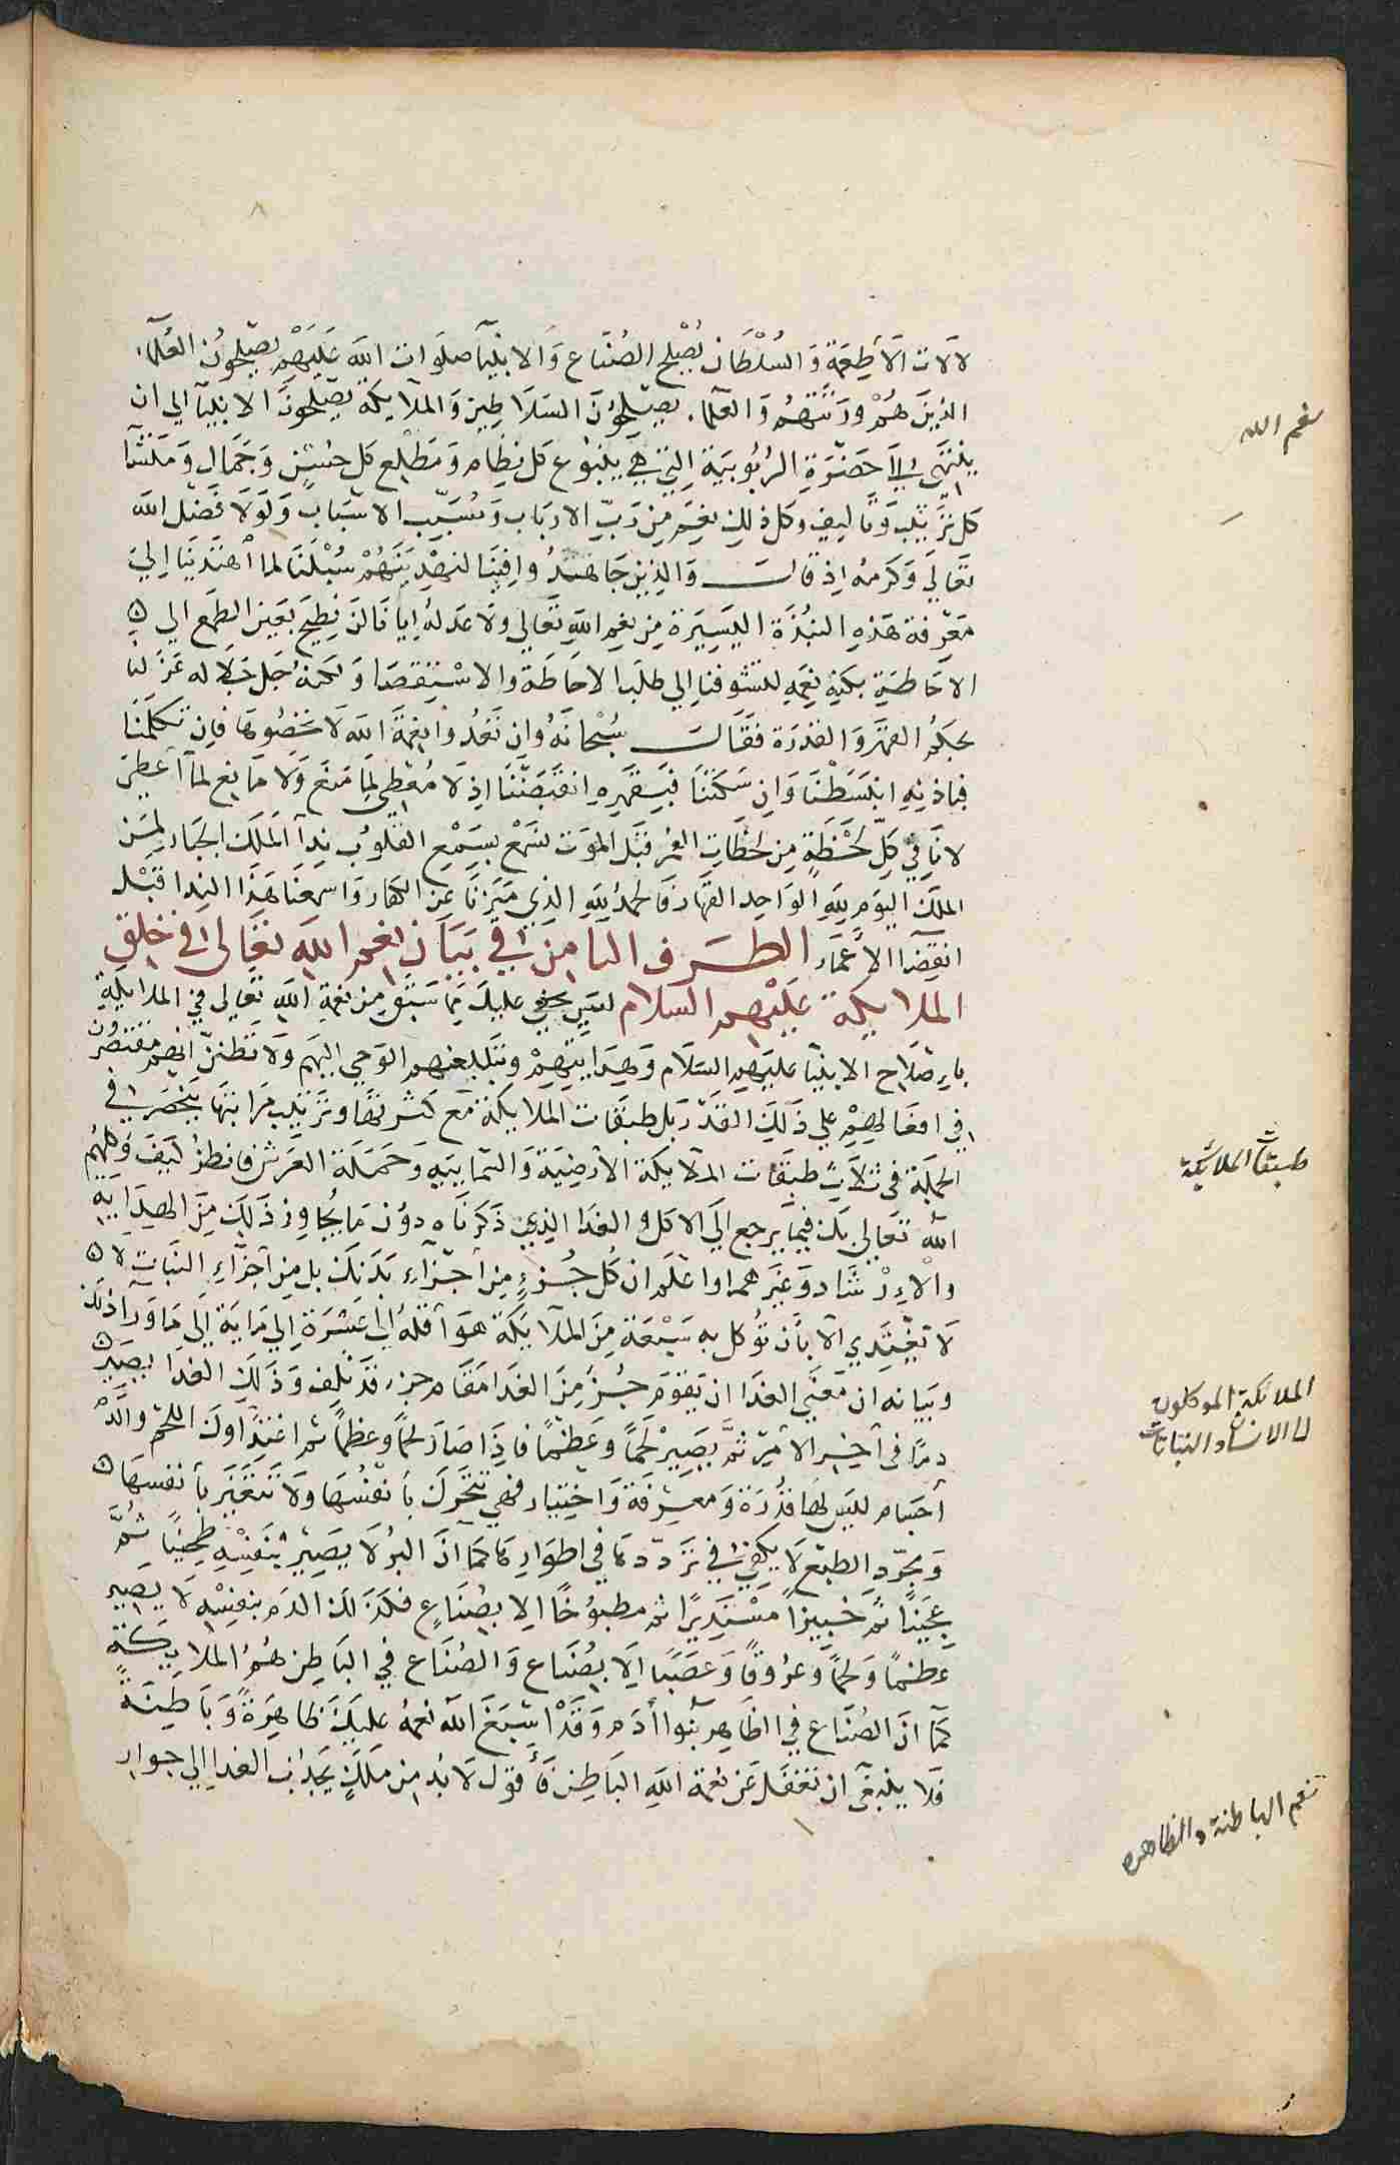 لالات الاطعمة والسلطان يصلح الصناع والانبيآ صلوات الله عليهم يصلحون العلمآء
الذين هم ورثتهم والعلمآء يصلحون السلاطين والملايكة يصلحون الانبيآ الي ان
ينتهي الي حضرة الربوبية التي هي ينبوع كل نظام ومطلع كل حسن وجمال ومنشا
كل ترتيب وتاليف وكل ذلك نعم من رب الارباب ومسبب الاسباب ولولا فضل الله
تعالي وكرمه اذ قال والذين جاهدوا فينا لنهدينهم سبلنا لما اهتدينا الي
معرفة هذه النبذة اليسيرة من نعم الله تعالي ولا عدله ايانا لن نطيح بعين الطمع الي
الاحاطة بكنه نعمه لتشوفنا الي طلب الاحاطة والاستقصا ولكنه جل جلاله عزلنا
بحكم القهر والقدرة فقال سبحانه وان تعدوا نعمة الله لا تحصوها فان تكلمنا
فباذنه انبسطنا وان سكتنا فبقهره انقبضنا اذ لا معطي لما منع ولا مانع لما اعطي
لانا في كل لحظة من لحظات العمر قبل الموت نسمع بسمع القلوب ندآ الملك الجبار لمن
الملك اليوم لله الواحد القهار فالحمد لله الذي ميزنا عن الكفار واسمعنا هذا الندا قبل
انقضآ الاعمار الطرف الثامن في بيان نعم الله تعالي في خلق
الملايكة عليهم السلام ليس يخفي عليك ما سبق من نعمة الله تعالي في الملايكة
باصلاح الانبيا عليهم السلام وهدايتهم وتبليغهم الوحي اليهم ولا تظنن انهم مقتصرون
في افعالهم علي ذلك القدر بل طبقات الملايكة مع كثرتها وترتيب مراتبها ينحصر في
الجملة في ثلاث طبقات الملايكة الارضية والسمايية وحملة العرش فانظر كيف وكلهم
الله تعالي بك فيما يرجع الي الاكل والغدا الذي ذكرناه دون ما يجاوز ذلك من الهداية
والارشاد وغيرهما واعلم ان كل جزء من اجزآء بدنك بل من اجزآء النبات لا
لا تغتدي الا بان توكل به سبعة من الملايكة هو اقله الي عشرة الي ماية الي ما ورآ ذلك
وبيانه ان معني الغدا ان يقوم جزء من الغدا مقام جزء قد تلف وذلك الغدا يصير
دما في اخر الامر ثم يصير لحماً وعظماً فاذا صار لحماً وعظماً ثم اغتذآوك اللحم والدم
اجسام ليس لها قدرة ومعرفة واختيار فهي تتحرك بانفسها ولا تتغير بانفسها
ومجرد الطبع لا يكفي في ترددها في اطوارها كما ان البر لا يصير بنفسه طحيناً ثم
عجيناً ثم خبيزاً مستديراً ثم مطبوخاً الا بصناع فكذلك الدم بنفسه لا يصير
عظماً ولحماً وعروقاً وعصبا الا بصناع والصناع في الباطن هم الملايكة
كما ان الصناع في الظاهر بنوا ادم وقد اسبغ الله نعمه عليك ظاهرة وباطنة
فلا ينبغي ان تغفل عن نعمة الله الباطن فاقول لا بد من ملك يجذب الغدا الي جوار
نعم الله
طبقات الملائكة
الملائكة الموكلون
بالانسان والنباتات
نعم الباطنة والظاهره